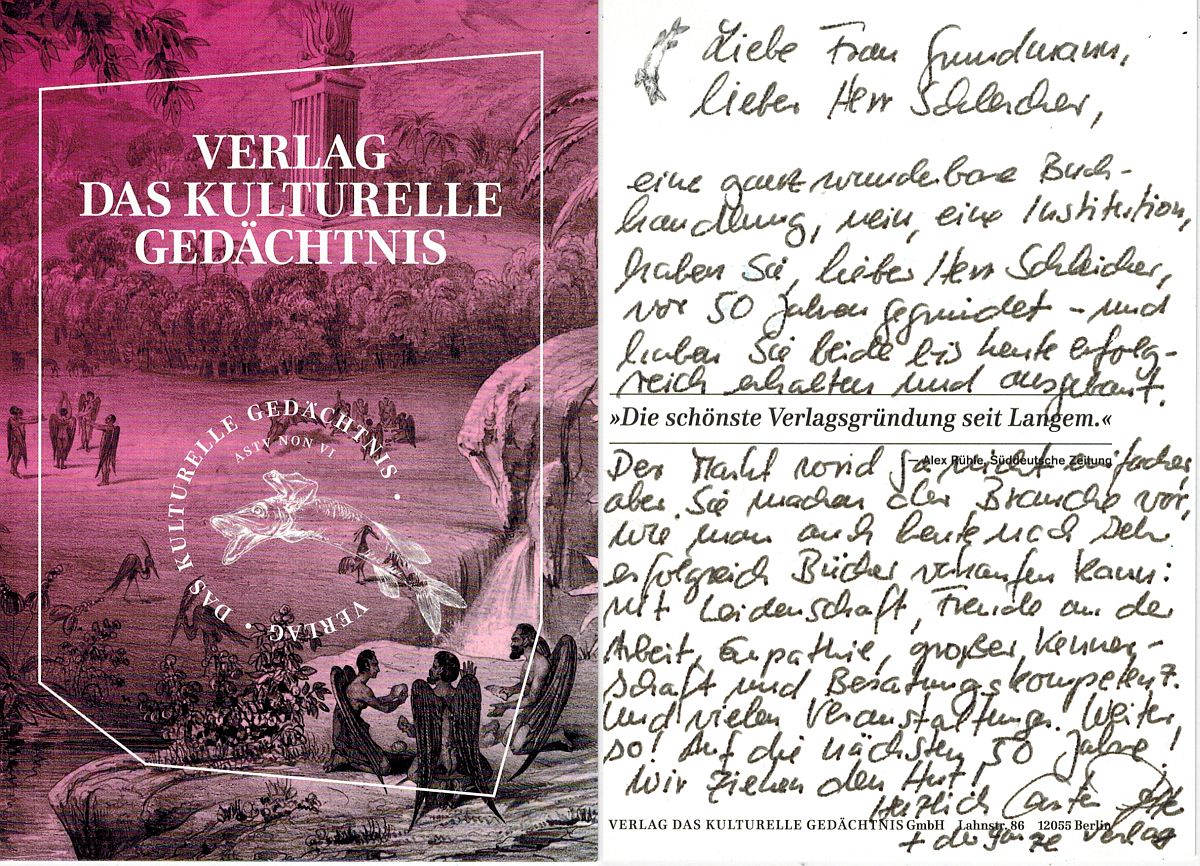 VERLAG
DAS KULTURELLE
GEDÄCHTNIS
DAS KULTURELLE GEDÄCHTNIS • VERLAG •
ASTV NON VI
Liebe Frau Grundmann,
lieber Herr Schleicher,
eine ganz wunderbare Buch-
handlung, nein, eine Institution,
haben Sie, lieber Herr Schleicher,
vor 50 Jahren gegründet – und
haben Sie beide bis heute erfolg-
reich erhalten und ausgebaut.
»Die schönste Verlagsgründung seit Langem.«
— Alex Rühle, Süddeutsche Zeitung
Der Markt wird ja nicht einfacher,
aber Sie machen der Branche vor,
wie man auch heute noch sehr
erfolgreich Bücher verkaufen kann:
mit Leidenschaft, Freude an der
Arbeit, Empathie, großer Kenner-
schaft und Beratungskompetenz.
Und vielen Veranstaltungen. Weiter
so! Auf die nächsten 50 Jahre!
Wir ziehen den Hut!
Herzlich Carsten
+ der ganze Verlag
VERLAG DAS KULTURELLE GEDÄCHTNIS GmbH Lahnstr. 86 12055 Berlin